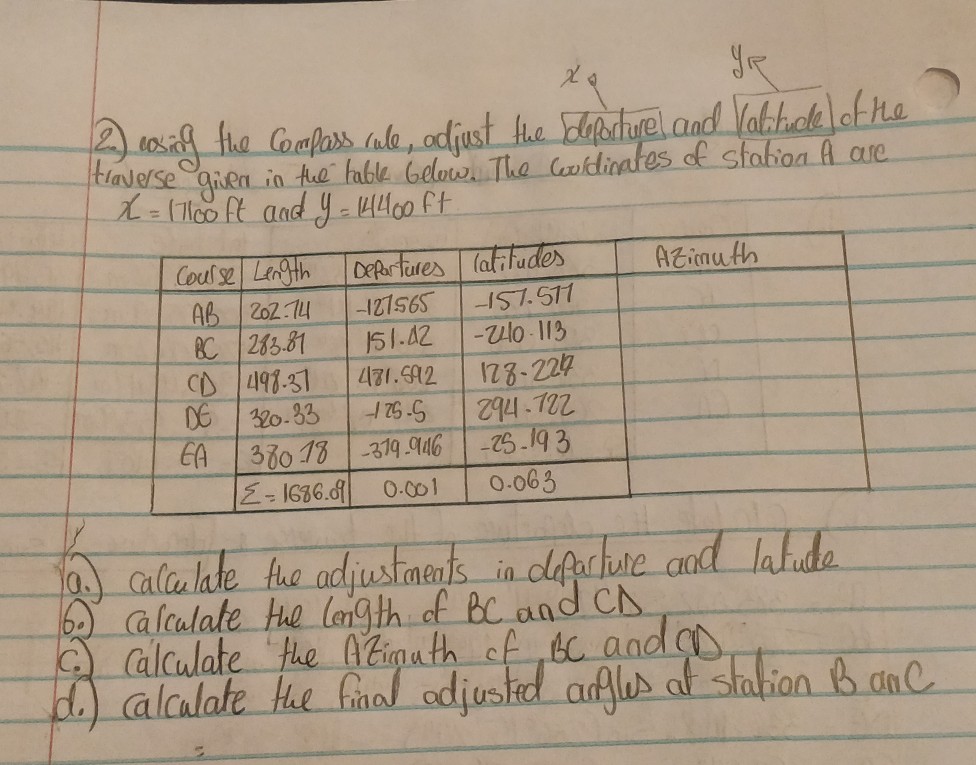 x
y
2.) using the Compass rule, adjust the departure and latitude of the
traverse given in the table below. The Coordinates of station A are
x = 17100 ft and y = 14400 ft
Course Length Departures latitudes AZimuth
AB 202.74 -127.565 -157.577
BC 283.81 151.42 -240.113
CD 498.37 481.592 128.224
DE 320.33 -125.5 294.722
EA 380.78 -379.946 -25.193
Σ = 1686.09 0.001 0.063
a.) calculate the adjustments in departure and latude
b.) calculate the length of BC and CD
c.) calculate the AZimuth of BC and CD
d.) calculate the final adjusted angles at station B anC
=